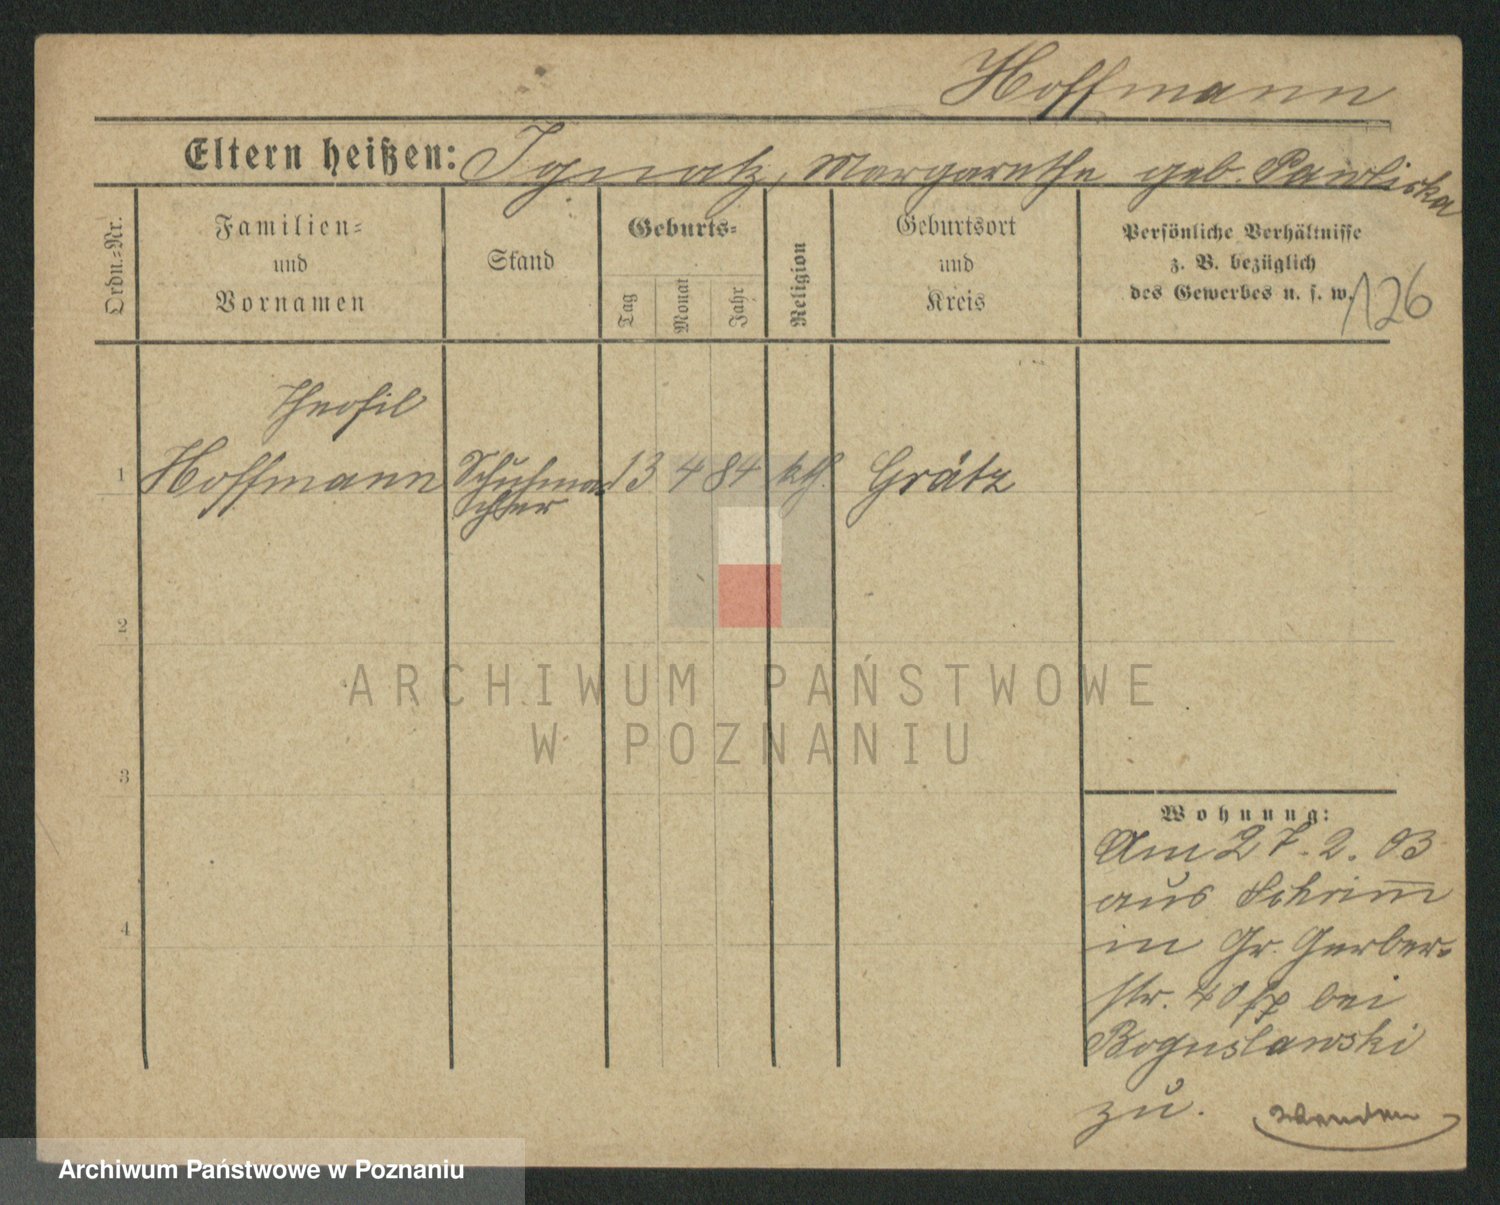 Hoffmann
Eltern heißen: Ignatz, Margarethe geb. Pawliska
Ordn.-Nr.
Familien-
und
Vornamen
Stand
Geburts-
Tag
Monat
Jahr
Religion
Geburtsort
und
Kreis
Persönliche Verhältnisse
z. B. bezüglich
des Gewerbes u. s. w.
126
Theofil
1 Hoffmann Schuhma 13 4 84 kth. Grätz
cher
2
3
4
Wohnung:
Am 27. 2. 03
aus Schrimm
in Gr. Gerber-
str. 40 bei
Boguslawski
zu.
Wenden
ARCHIWUM PAŃSTWOWE
W POZNANIU
Archiwum Państwowe w Poznaniu